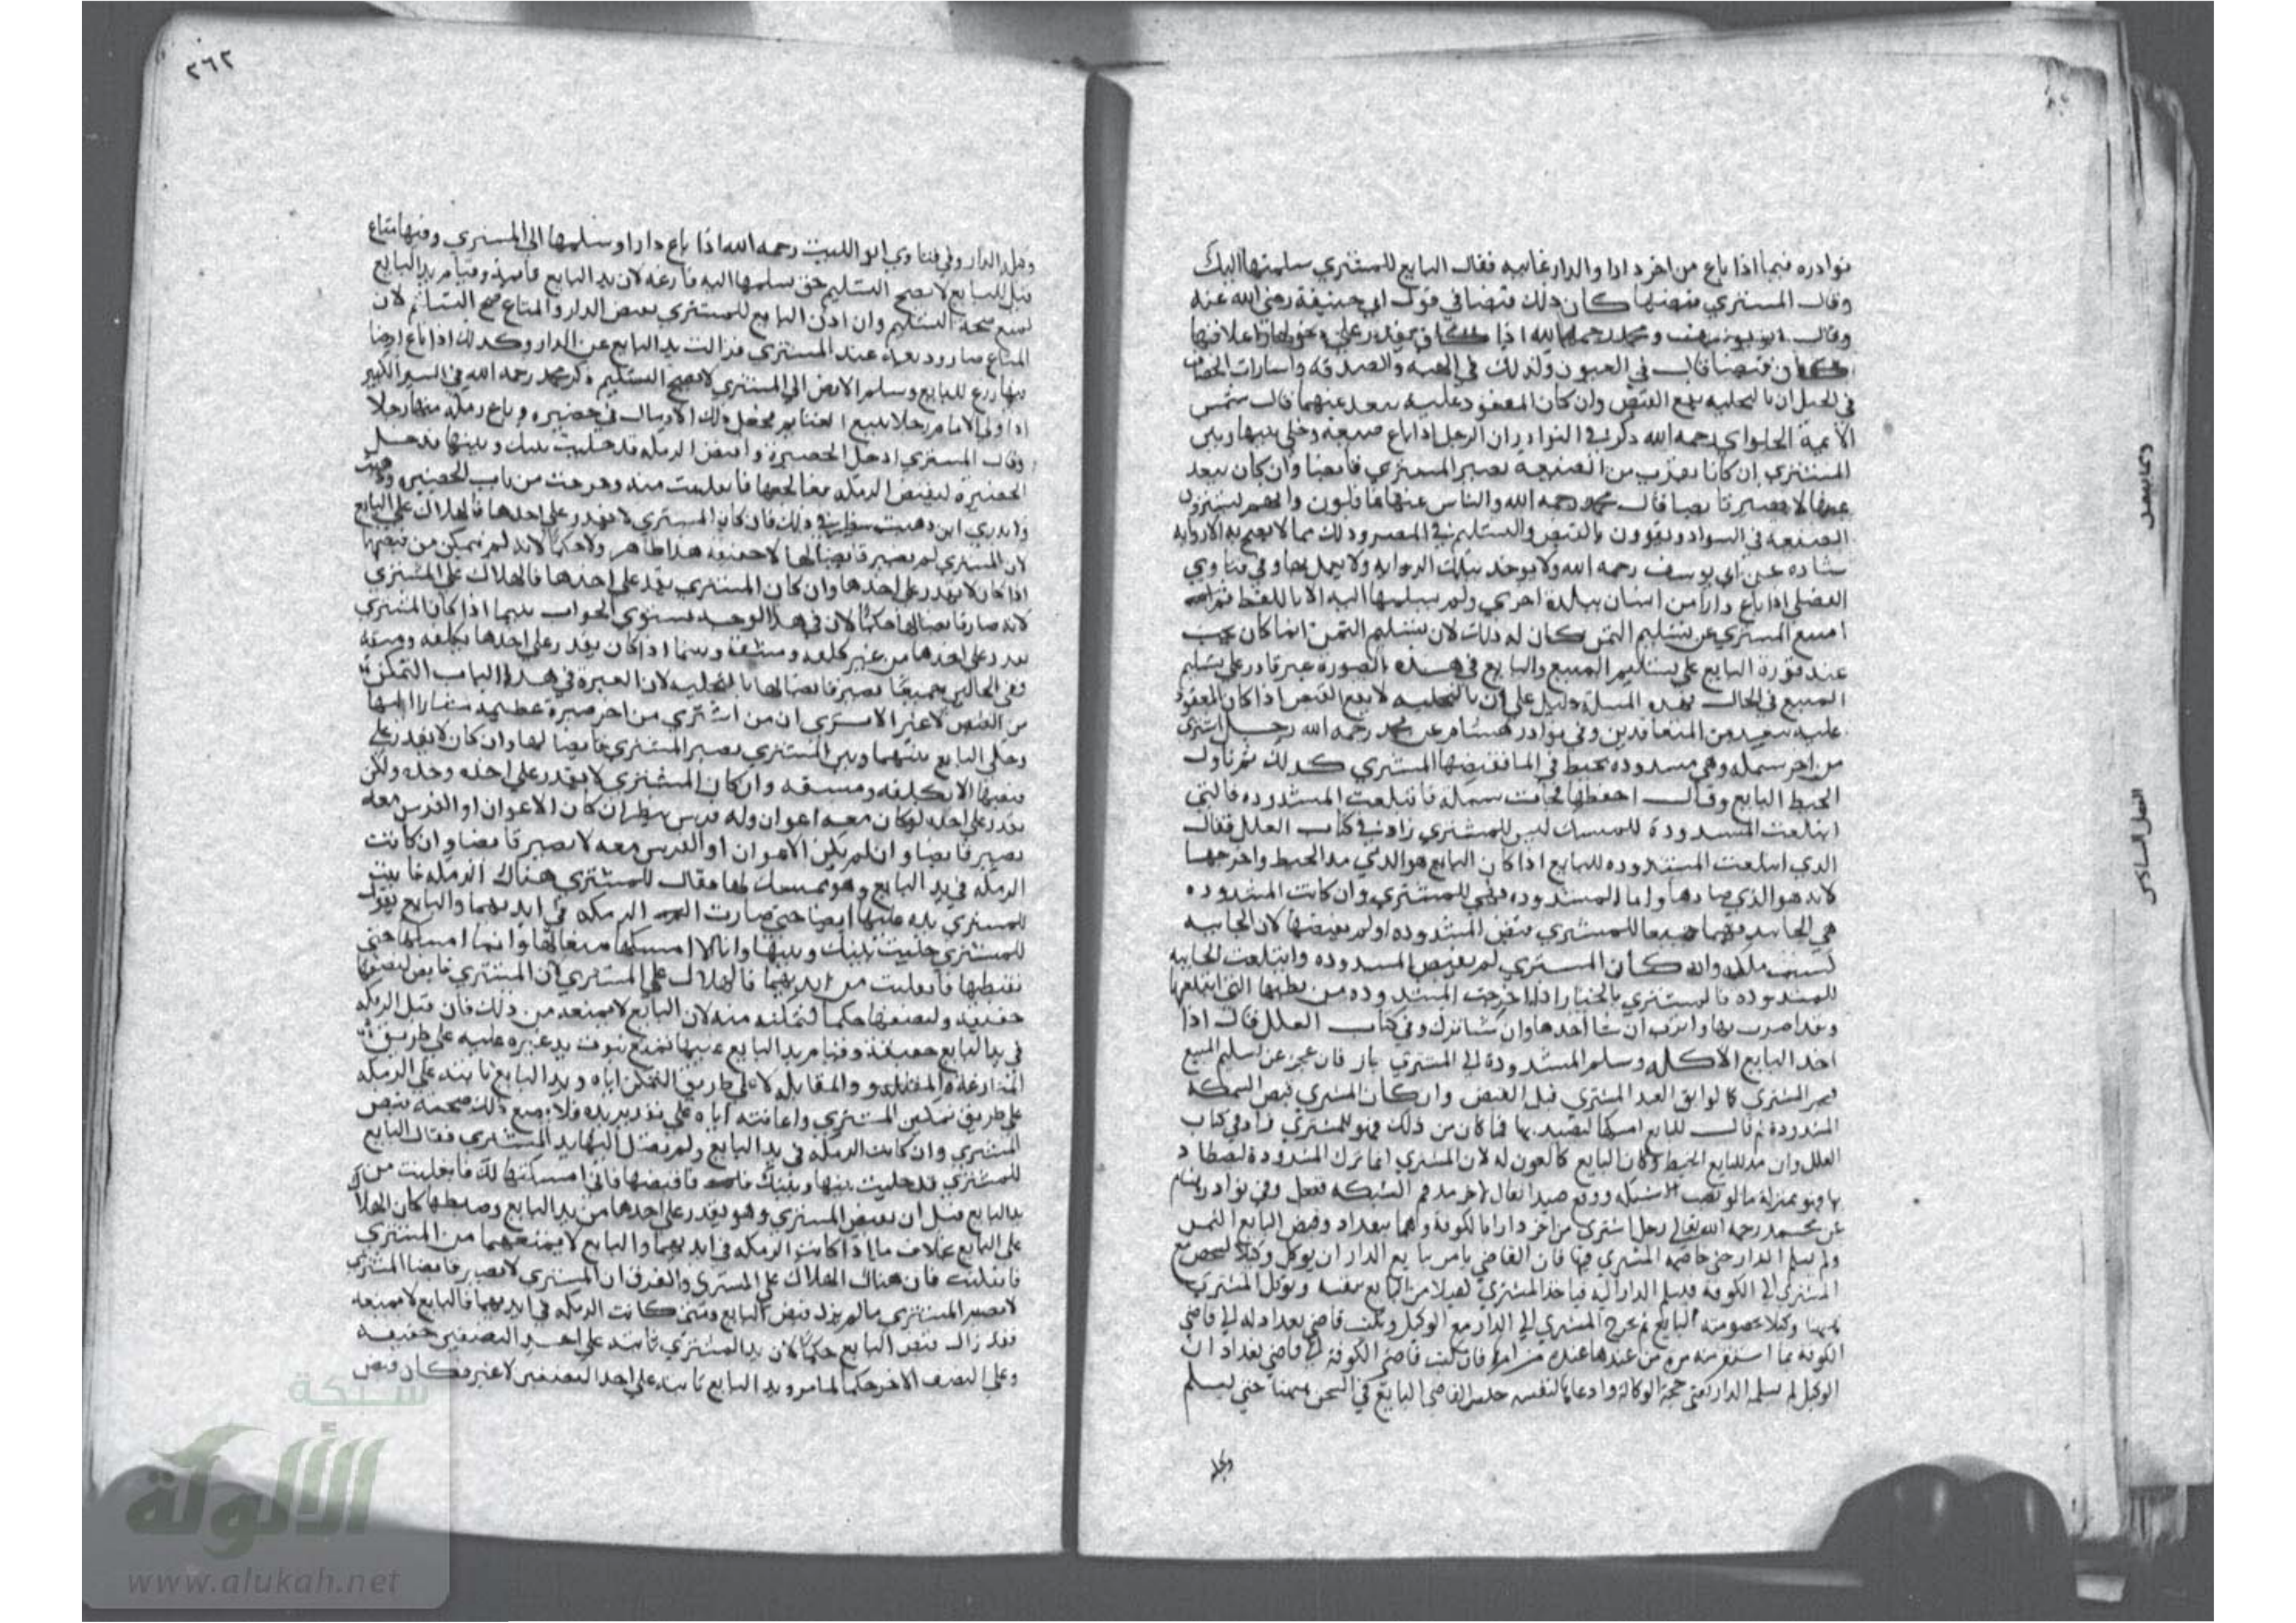 نوادره فيما اذا باع من اخر دارا والدار غايبه فقال البايع للمشتري سلمتها اليك
وقال المشتري قبضتها كان ذلك قبضا في قول ابي حنيفة رضي الله عنه
وقال ابو يوسف ومحمد رحمهما الله اذا
قبضا قال في العيون وكذلك في الهبه والصدقه واشارات
في الحيل ان بالتخليه يقع القبض وان كان المعقود عليه يبعد عنهما قال شمس
الايمة الحلواي رحمه الله ذكر في النوادر ان الرجل اذا باع ضيعه وخلى بينها وبين
المشتري ان كانا بقرب من الضيعه يصير المشتري قابضا وان كان يبعد
عنها لا يصير قابضا قال محمد رحمه الله والناس عنها غافلون وانهم يشترون
الضيعه في السواد ويقرون بالقبض والتسليم في المصر وذلك مما لا يصح به الا روايه
شاده عن ابي يوسف رحمه الله ولا يوخد بتلك الروايه ولا يعمل بها وفي فتاوي
الفضلي اذا باع دارا من انسان ببلدة اخري ولم يسلمها اليه الا باللفظ
امتنع المشتري عن تسليم الثمن كان له ذلك لان تسليم الثمن انما كان يجب
عند قدرة البايع على تسليم المبيع والبايع في هذه الصورة غير قادر على تسليم
المبيع في الحال فهذه المسلة دليل على ان بالتخليه لا يقع القبض اذا كان المعقود
عليه يبعد من المتعاقدين وفي نوادر هشام عن محمد رحمه الله رجل اشترى
من اخر سمكه وهي مشدوده بخيط في الما فقبضها المشتري كذلك ثم ناول
الخيط البايع وقال احفظها فجات سمكة فابتلعت المشدوده فالتي
ابتلعت المشدودة للسماك ليس للمشتري زاد في كتاب العلل فقال
الذي ابتلعت المشدوده للبايع اذا كان البايع هو الذي مد الخيط واخرجها
لانه هو الذي صادها واما المشدوده فهي للمشتري وان كانت المشدوده
هي الجانيه فهما جميعا للمشتري قبض المشدوده او لم يقبضها لان الجانيه
ليست ملكه وان كان المشتري لم يقبض المشدوده وابتلعت الجانيه
للمشدوده فالمشتري بالخيار اذا اخرجت المشدوده من بطنها التي ابتلعتها
وقد اضرب بها وانزب ان شا اخدها وان شا ترك وفي كتاب العلل قال اذا
اخد البايع الاكله وسلم المشدودة الى المشتري جاز فان عجز عن تسليم المبيع
خير المشتري كما لو ابق العبد المشتري قبل القبض وان كان المشتري قبض السمكة
المشدودة ثم قال للبايع امسكها لتصيد بها فما كان من ذلك فهو للمشتري زاد في كتاب
العلل وان مد البايع الخيط وكان البايع كالعون له لان المشتري انما ترك المشدودة ليصطاد
بها وهو بمنزلة ما لو نصب شبكه ووقع صيد فقال لاخر مد هذه الشبكه ففعل وفي نوادر هشام
عن محمد رحمه الله تعالى رجل اشترى من اخر دارا بالكوفة وهما ببغداد وقبض البايع الثمن
ولم يسلم الدار حتى خاصمه المشتري فيها فان القاضي يامر بايع الدار ان يوكل وكيلا ليخرج مع
المشتري الى الكوفة فيسلم الدار اليه فياخذ المشتري كفيلا من البايع بنفسه ويوكل المشتري
وكيلا بخصومة البايع ثم يخرج المشتري الى الدار مع الوكيل ويكتب قاضي بغداد له الى قاضي
الكوفة بما استقر فان كتب قاضي الكوفة الى قاضي بغداد ان
الوكيل لم يسلم الدار حبس القاضي البايع في السجن حتى يسلم
وهل
وهل الدار وفي فتاوي ابو الليث رحمه الله اذا باع دارا وسلمها الى المشتري وفيها متاع
قبل للبايع لا يصح التسليم حتى يسلمها اليه فارغه لان يد البايع قايمة وقيام يد البايع
تمنع صحة التسليم وان اذن البايع للمشتري بقبض الدار والمتاع صح التسليم لان
المتاع صار وديعه عند المشتري فزالت يد البايع عن الدار وكذلك اذا باع ارضا
فيها زرع للبايع وسلم الارض الى المشتري لا يصح التسليم ذكر محمد رحمه الله في السير الكبير
اذا ولى الامام رجلا بيع الغنايم فجعل ذلك الارماك في حضيره وباع رمكه منها رجلا
وقال المشتري ادخل الحضيرة واقبض الرمكه قد خليت بينك وبينها فدخل
الحضيرة ليقبض الرمكه فعالجها فانفلتت منه وخرجت من باب الحضيره وذهبت
ولا يدري اين ذهبت ينظر في ذلك فان كان المشتري لا يقدر على اخدها فالهلاك على البايع
لان المشتري لم يصير قابضا لها لا حقيقه هذا ظاهر ولا حكما لانه لم يتمكن من قبضها
اذا كان لا يقدر على اخدها وان كان المشتري يقدر على اخدها فالهلاك على المشتري
لانه صار قابضا لها حكما لان في هذا الوجه يستوي الجواب بينما اذا كان المشتري
يقدر على اخدها من غير كلفه ومشقة وبينما اذا كان يقدر على اخدها بكلفه ومشقه
وفي الحالين جميعا يصير قابضا لها بالتخليه لان العبرة في هذا الباب التمكن
من القبض لا غير الا ترى ان من اشترى من اخر صبرة عظيمه مشارا اليها
وخلى البايع بينهما وبين المشتري يصير المشتري قابضا لها وان كان لا يقدر على
قبضها الا بكلفه ومشقه وان كان المشتري لا يقدر على اخذه وحده ولكن
يقدر على اخذه لو كان معه اعوان وله فرس ينظر ان كان الاعوان او الفرس معه
يصير قابضا وان لم يكن الاعوان او الفرس معه لا يصير قابضا وان كانت
الرمكه في يد البايع وهو ممسك لها فقال للمشتري هناك الرمكه فاثبت
المشتري يده عليها ايضا حتى صارت الرمكه في ايديهما والبايع يقول
للمشتري خليت بينك وبينها وانا لا امسكها منعا لها وانما امسكها حتى
تضبطها فانفلتت من ايديهما فالهلاك على المشتري لان المشتري قابض لنصفها
حقيقه ولنصفها حكما لتمكنه منه لان البايع لا يمنعه من ذلك فان قيل الرمكه
في يد البايع حقيقة وقيام يد البايع عليها تمنع ثبوت يد غيره عليه على طريق
المنازعة والمقابلة لا على طريق التمكن اياه ويد البايع ثابته على الرمكه
على طريق تمكين المشتري واعانته اياه على تقرير يده فلا يمنع ذلك صحة قبض
المشتري وان كانت الرمكه في يد البايع ولم تصل اليها يد المشتري فقال البايع
للمشتري قد خليت بينها وبينك فاقبضها فاني امسكتها لك فانفلتت من
يد البايع قبل ان يقبض المشتري وهو يقدر على اخدها من يد البايع وضبطها كان الهلاك
على البايع بخلاف ما اذا كانت الرمكه في ايديهما والبايع لا يمنعهما من المشتري
فانفلتت فان هناك الهلاك على المشتري والفرق ان المشتري لا يصير قابضا المشتري
لا يصير المشتري ما لم يزل قبض البايع ومتى كانت الرمكه في ايديهما فالبايع لا يمنعه
فقد زال قبض البايع حكما لان يد المشتري ثابته على احد النصفين حقيقه
وعلى النصف الاخر حكما لما مر ويد البايع ثابته على احد النصفين لا غير فكان قبض
٢٦٢
الفصل السادس
شبكة
الألوكة
www.alukah.net